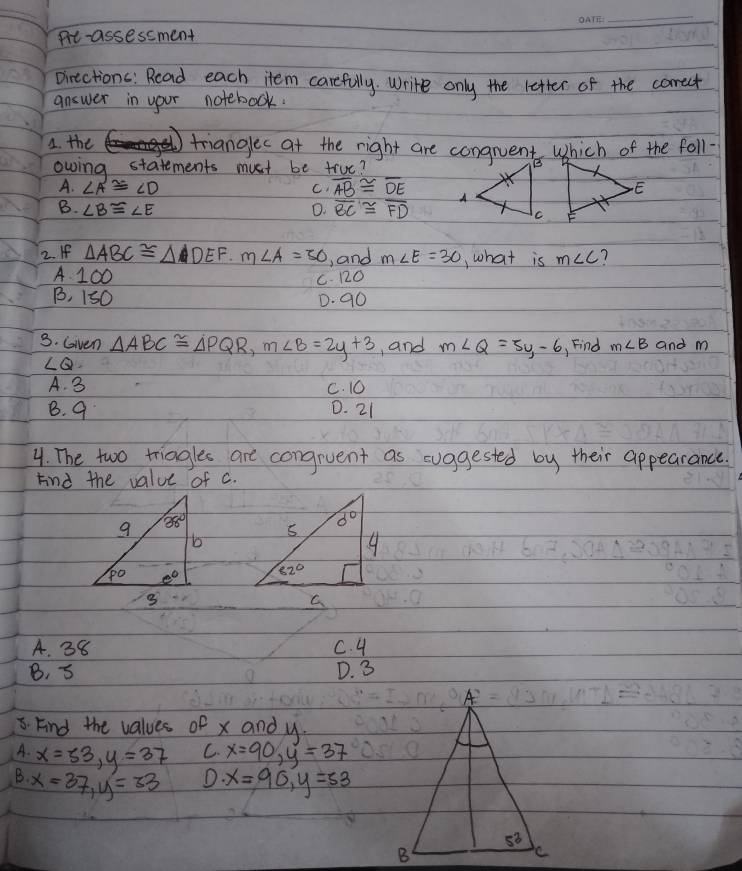 DATE:
Pre-assessment
Directions: Read each item carefully. Write only the letter of the correct
answer in your notebook.
1. the triangles at the right are congruent. Which of the foll-
owing statements must be true?
A. ∠A ≅ ∠D
C. AB ≅ DE
B. ∠B ≅ ∠E
D. BC ≅ FD
A
B
C
D
E
F
2. If △ABC ≅ △DEF. m∠A = 50, and m∠E = 30, what is m∠C?
A. 100
C. 120
B. 150
D. 90
3. Given △ABC ≅ △PQR, m∠B = 2y+3, and m∠Q = 5y-6, Find m∠B and m
∠Q.
A. 3
C. 10
B. 9
D. 21
4. The two triagles are congruent as suggested by their appearance.
Find the value of c.
9
38°
b
e°
3
5
d°
4
52°
A. 38
C. 4
B. 5
D. 3
5. Find the values of x and y.
A. x = 53, y = 37
C. x = 90, y = 37
B. x = 37, y = 53
D. x = 90, y = 53
A
B
53
C